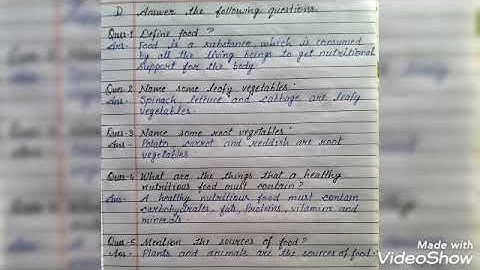 D Answer the following questions.
Ques-1 Define food ?
Ans- Food is a substance which is consumed
by all the living beings to get nutritional
support for the body
Ques-2 Name some leafy vegetables ?
Ans- Spinach, lettuce and cabbage are leafy
vegetables
Ques-3 Name some root vegetables ?
Ans- Potato, carrot and reddish are root
vegetables
Ques-4 What are the things that a healthy
nutritious food must contain ?
Ans- A healthy nutritious food must contain
carbohydrates, fats, proteins, vitamins and
minerals
Ques-5 Mention the sources of food ?
Ans- Plants and animals are the sources of food.
Made with
VideoShow